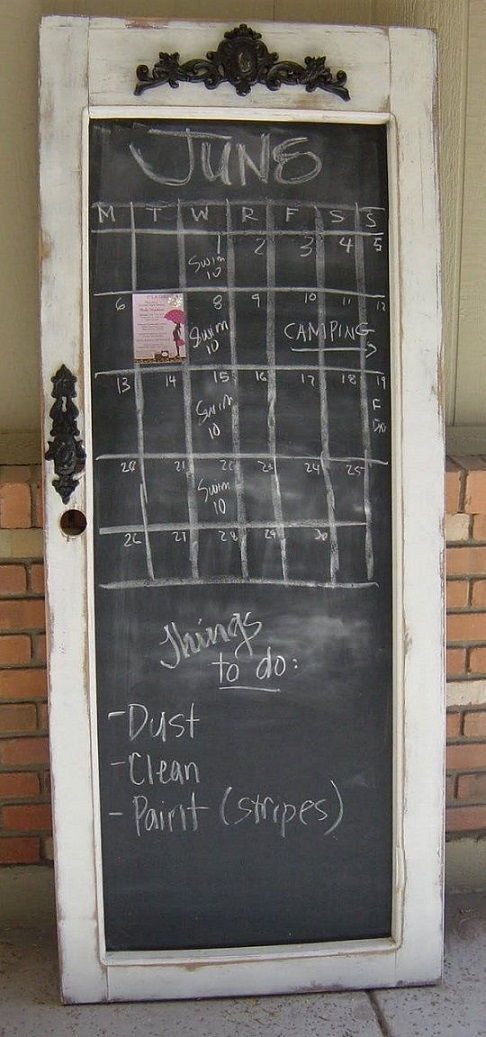 JUNE
M T W R F S S
1 2 3 4 5
Swim
10
6 8 9 10 11 12
Swim
10
CAMPING
13 14 15 16 17 18 19
Swim
10
F
20 21 22 23 24 25
Swim
10
26 27 28 29 30
Things
to do:
-Dust
-Clean
-Paint (stripes)